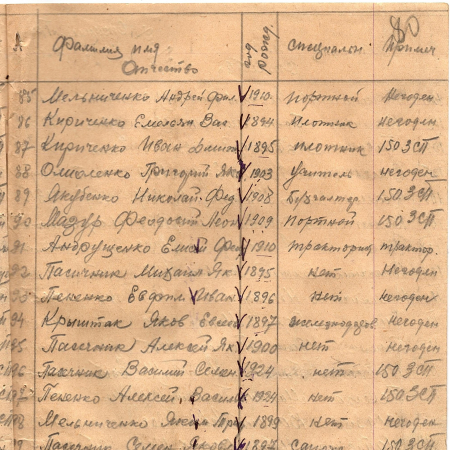 80
№ Фамилия имя год Специальн. Примеч
Отчество рожд.
85 Мельниченко Андрей Фил. 1910 портной негоден
86 Кириченко Емельян Вас 1894 Плотник негоден
87 Кириченко Иван Дмит 1895 плотник 150 ЗСП
88 Омеленко Григорий Як 1903 учитель негоден
89 Якубенко Николай Фед 1908 бухгалтер 150 ЗСП
90 Мазур Феодосий Леон 1909 портной 150 ЗСП
91 Андрущенко Елисей Фео 1910 тракторист трактор.
92 Пасичник Михаил Як 1895 нет Негоден
93 Пененко Евдоким Иван 1896 нет негоден
94 Крыштак Яков Евсее 1897 железнодоров. негоден
95 Пасечник Алексей Як 1900 нет негоден
96 Пасичник Василий Семен 1924 нет 150 ЗСП
Пененко Алексей Василь 1924 нет 150 ЗСП
Мельниченко Яким Про 1899 нет негоден
Пасечник Семен Яковл 1897 150 ЗСП